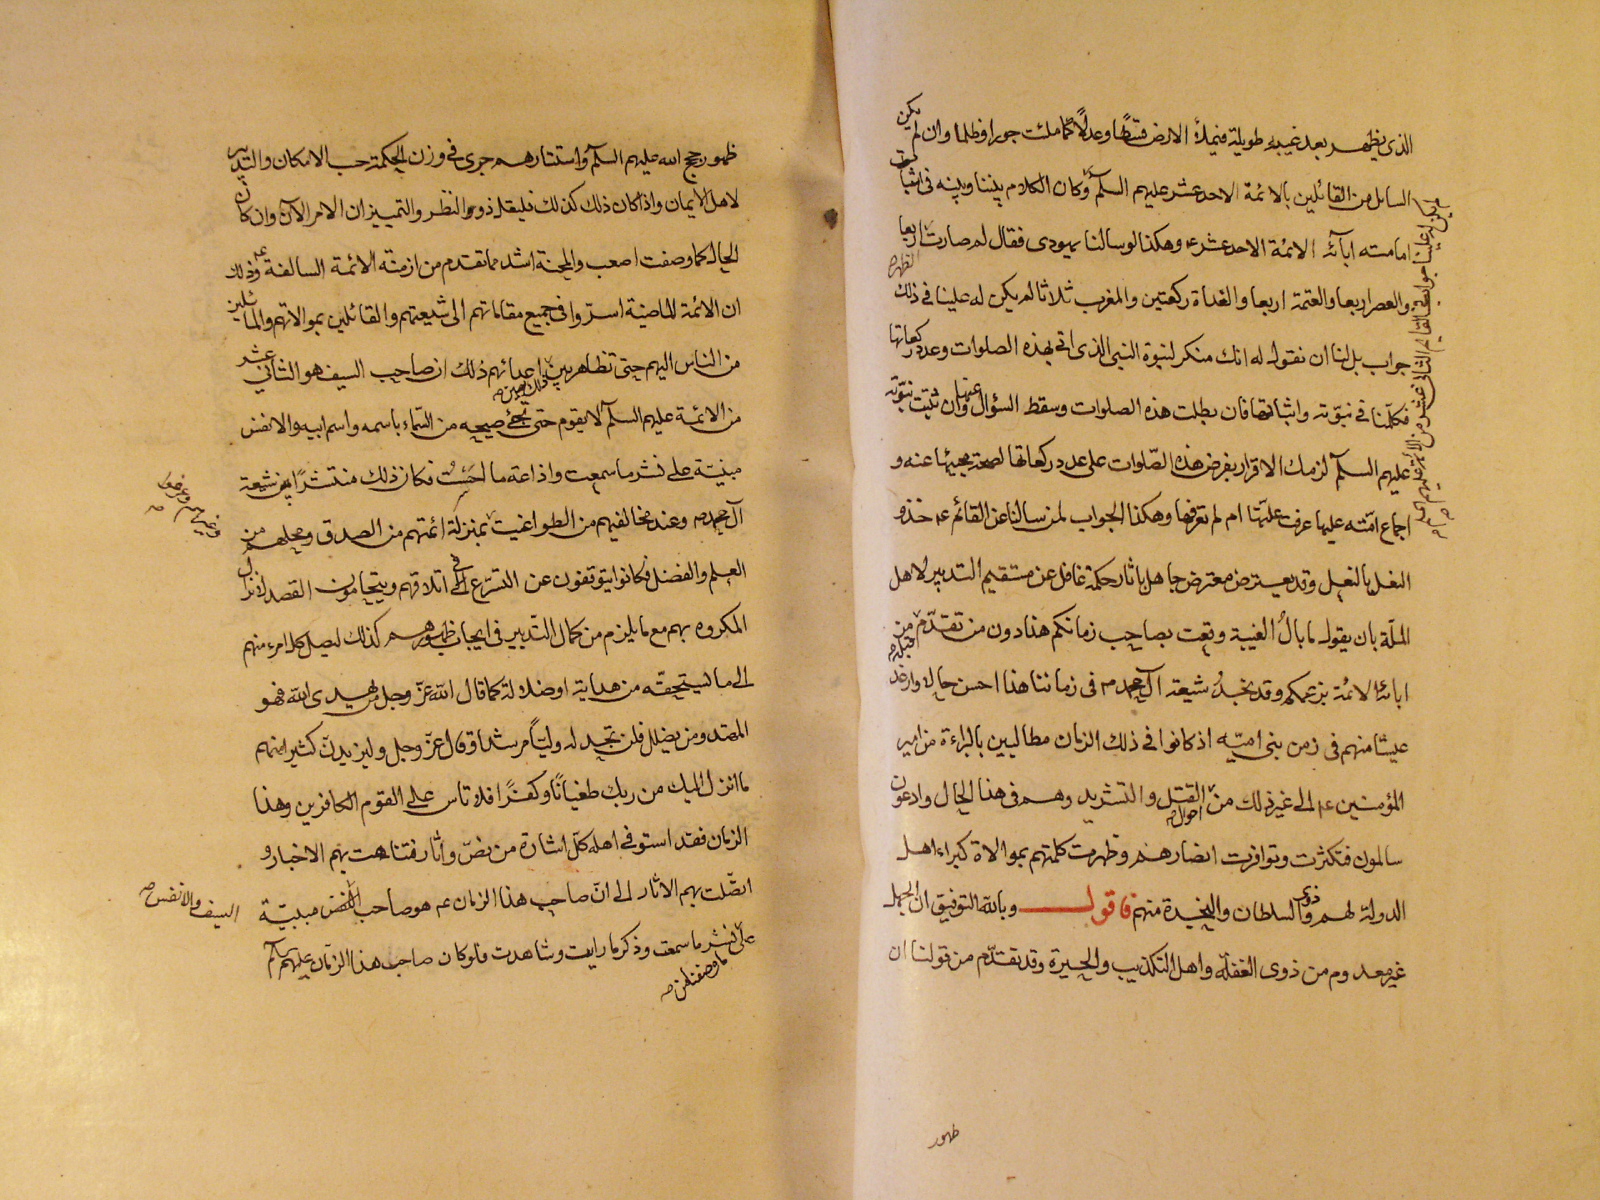 الذى يظهر بعد غيبة طويلة فيملأ الارض قسطا وعدلا كما ملئت جورا وظلما وان لم يكن
السائل من القائلين بالائمة الاحد عشر عليهم السلم وكان الكلام بيننا وبينه فى اثبات
امامته ابآئه الائمة الاحد عشر ع وهكذا لو سالنا يهودى فقال لم صارت الظهر اربعا
والعصر اربعا والعتمة اربعا والغداة ركعتين والمغرب ثلاثا لم يكن له علينا فى ذلك
جواب بل لنا ان نقول له انك منكر لنبوة النبى الذى اتى بهذه الصلوات وعدد ركعاتها
فكلّمنا فى نبوّته واثباتها فان بطلت هذه الصلوات وسقط السؤال عنها وان ثبتت نبوّته
عليهم السلم لزمك الاقرار بفرض هذه الصّلوات على عدد ركعاتها لصحة مجيئها عنه و
اجماع امّته عليها عرفت علّتها ام لم تعرفها وهكذا الجواب لمن سالنا عن القائم ع حذو
النعل بالنعل وقد يعترض معترض جاهل باثار حكمة غافل عن مستقيم التدبير لاهل
الملّة بان يقول ما بال الغيبة وقعت بصاحب زمانكم هذا دون من تقدّم من قبله
ابائه الائمة بزعمكم وقد نجد شيعة آل محمد ص فى زماننا هذا احسن حالا وارغد
عيشا منهم فى زمن بنى اميّه اذ كانوا فى ذلك الزمان مطالبين بالبراءة من امير
المؤمنين ع الى غير ذلك من احوال القتل والتشريد وهم فى هذا الحال وادعون
سالمون فتكثرت وتوافرت انصارهم وظهرت كلمتهم بموالاة كبراء اهل
الدولة لهم وذوى السلطان والنجدة منهم فاقول وبالله التوفيق ان الجهل
غير معدوم من ذوى الغفلة واهل التكذيب والحيرة وقد تقدّم من قولنا ان
ظهور
ظهور حجج الله عليهم السلم واستتارهم جرى فى وزن الحكمة حسب الامكان والتدبير
لاهل الايمان واذا كان ذلك كذلك فليقل ذووا النظر والتمييز ان الامر الآن وان كان
الحال كما وصفت اصعب والمحنة اشد مما تقدم من ازمنة الائمة السالفة ع وذلك
ان الائمة الماضية اسرّوا فى جميع مقاماتهم الى شيعتهم والقائلين بموالاتهم والمائلين
من الناس اليهم حتى تظاهر بين اعدائهم ذلك ان صاحب السيف هو الثانى عشر
من الائمة عليهم السلم لا يقوم حتى تجئ صيحه من السّماء باسمه واسم ابيه والانفس
مبنيّة على نشر ما سمعت واذاعة ما احسّت فكان ذلك منتشرًا بين شيعة
آل محمد ص وعند مخالفيهم من الطواغيت بمنزلة ائمتهم من الصدق ومحلهم من
العلم والفضل فكانوا يتوقفون عن التسرّع فى اتلافهم ويتحامون القصد لانزال
المكروه بهم مع ما يلزم من كمال التدبير فى ايجاب ظهورهم كذلك ليصل كل امرء منهم
الى ما يستحقه من هداية او ضلالة كما قال الله عزّ وجل من يهدى الله فهو
المهتد ومن يضلل فلن تجد له وليًّا مرشدا وقال عزّ وجل وليزيدنّ كثيرا منهم
ما انزل اليك من ربك طغيانًا وكفرًا فلا تاس على القوم الكافرين وهذا
الزمان فقد استوفى اهله كل اشارة من نصّ واثار فتناهت بهم الاخبار و
اتصّلت بهم الاثار الى انّ صاحب هذا الزمان ع هو صاحب مبنيّة
السيف والانفس ص
على نشر ما سمعت وذكر ما رايت وشاهدت فلو كان صاحب هذا الزمان عليهم السلم
ما وصفنا من ص